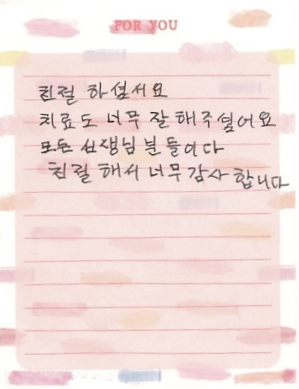 FOR YOU
친절 하셨서요
치료도 너무 잘 해주셨어요
모든 선생님 분들이다
친절 해서 너무 감사 합니다